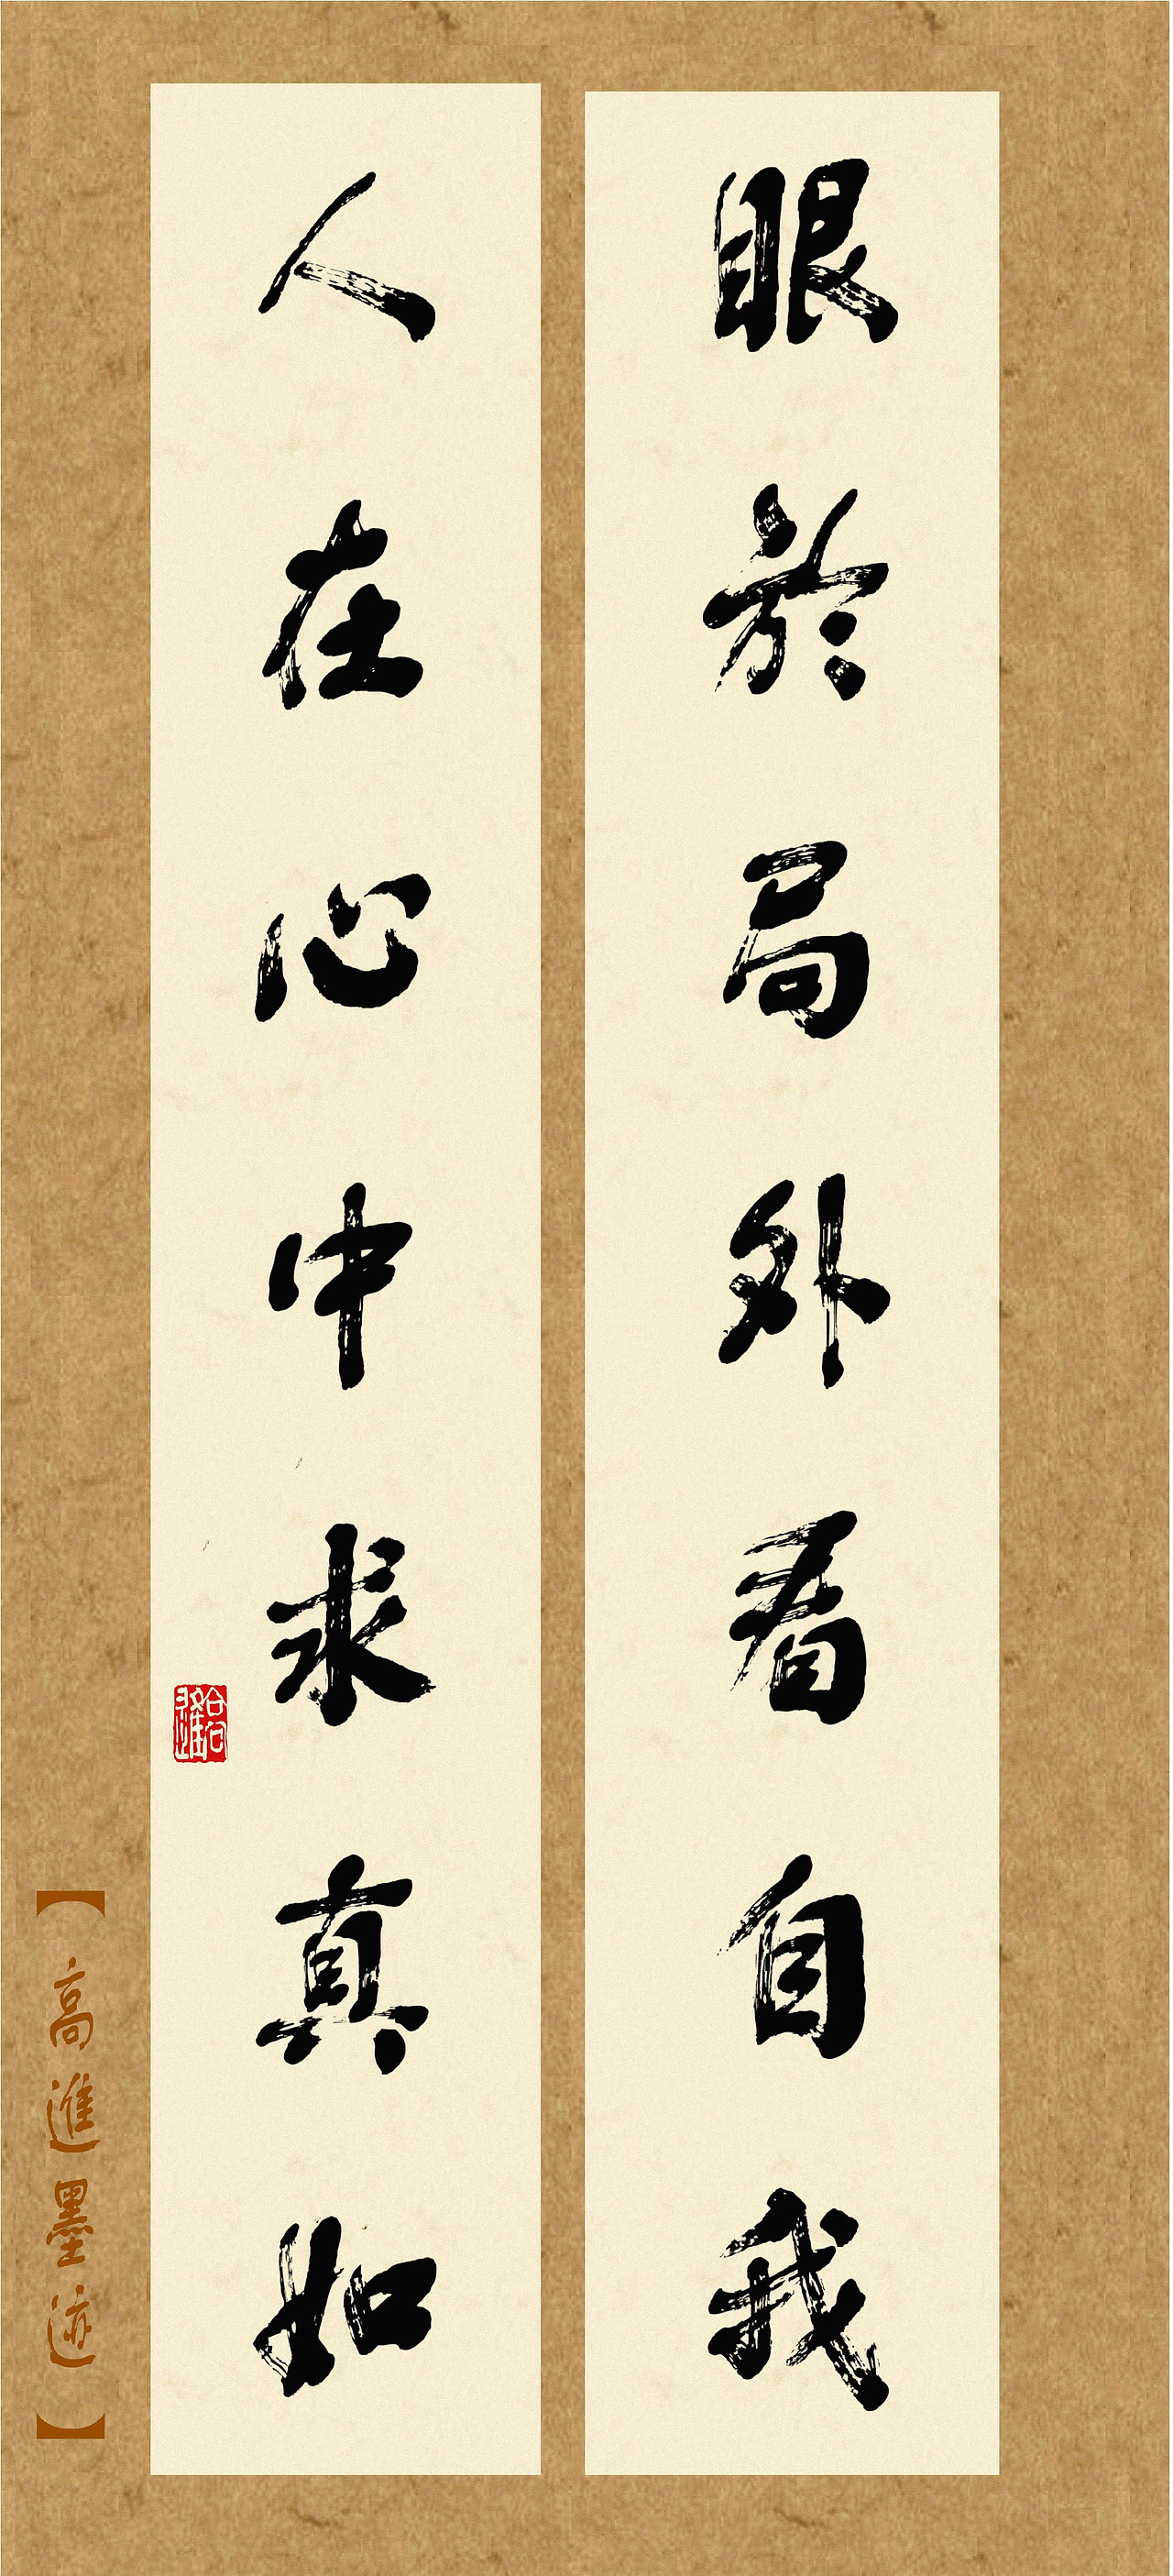 眼於局外看自我
人在心中求真如
【高進墨迹】